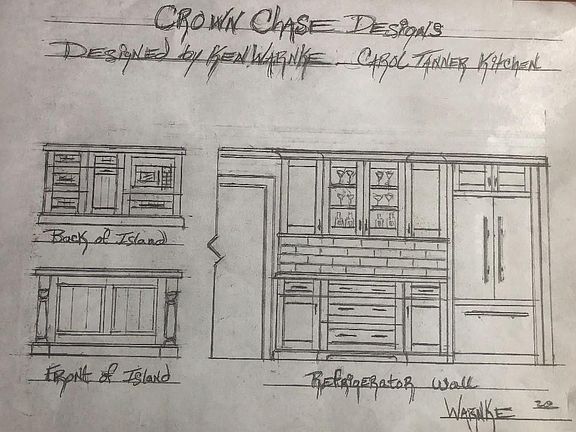 Crown Chase Designs
Designed by Ken Warnke Carol Tanner Kitchen
Back of Island
Front of Island
Refrigerator Wall
Warnke